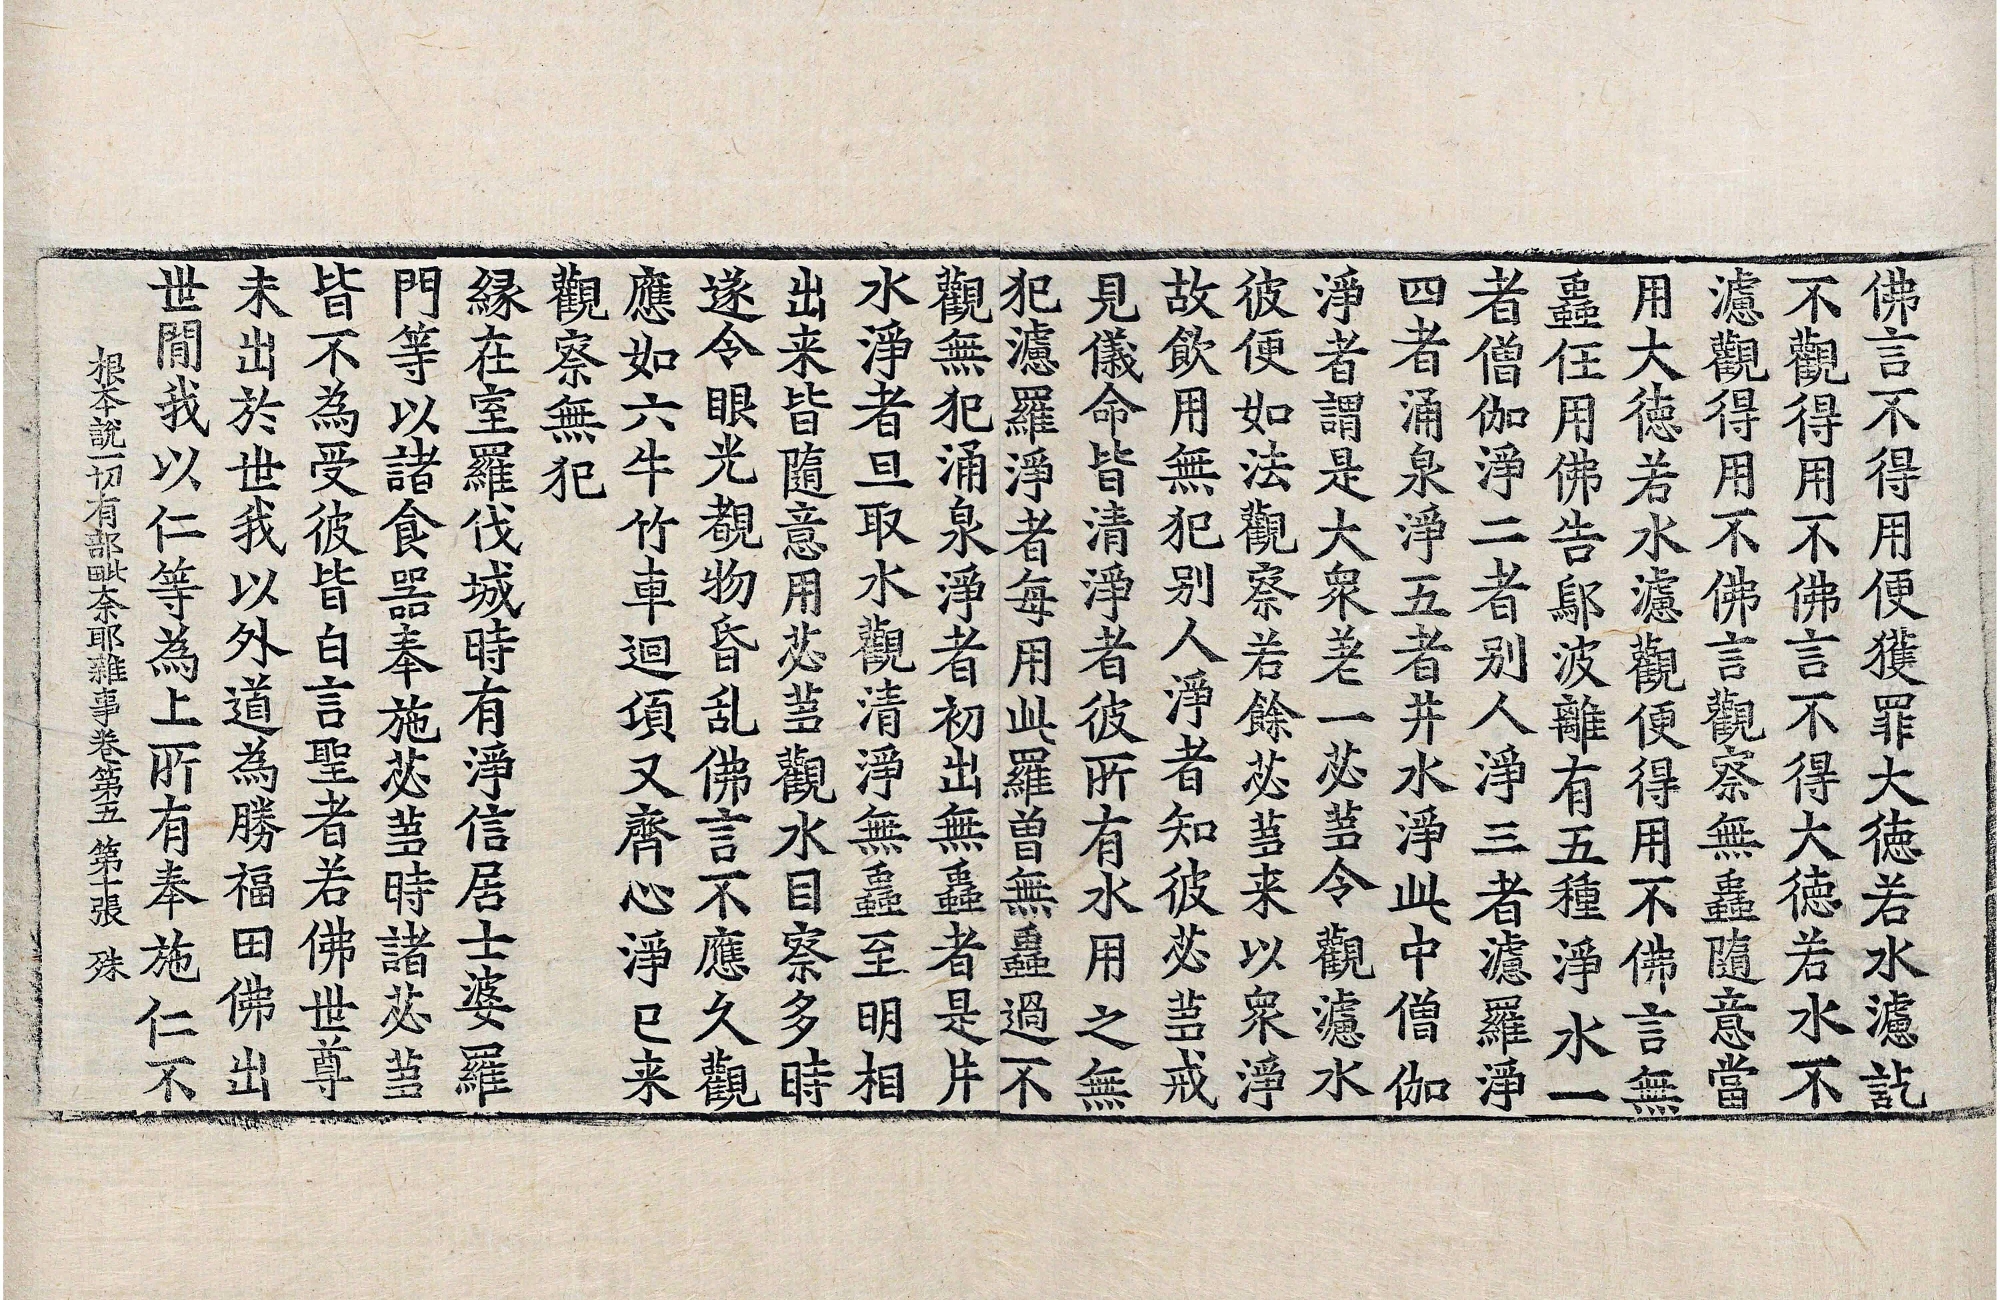 佛言不得用便獲罪大德若水濾訖
不觀得用不佛言不得大德若水不
濾觀得用不佛言觀察無蟲隨意當
用大德若水濾觀便得用不佛言無
蟲任用佛告鄔波離有五種淨水一
者僧伽淨二者別人淨三者濾羅淨
四者涌泉淨五者井水淨此中僧伽
淨者謂是大衆差一苾芻令觀濾水
彼便如法觀察若餘苾芻来以衆淨
故飲用無犯別人淨者知彼苾芻戒
見儀命皆清淨者彼所有水用之無
犯濾羅淨者每用此羅曾無蟲過不
觀無犯涌泉淨者初出無蟲者是井
水淨者旦取水觀清淨無蟲至明相
出来皆隨意用苾芻觀水目察多時
遂令眼光覩物昏乱佛言不應久觀
應如六牛竹車迴項又齊心淨已来
觀察無犯
緣在室羅伐城時有淨信居士婆羅
門等以諸食器奉施苾芻時諸苾芻
皆不為受彼皆白言聖者若佛世尊
未出於世我以外道為勝福田佛出
世間我以仁等為上所有奉施仁不
根本說一切有部毗奈耶雜事卷第五 第十張 殊